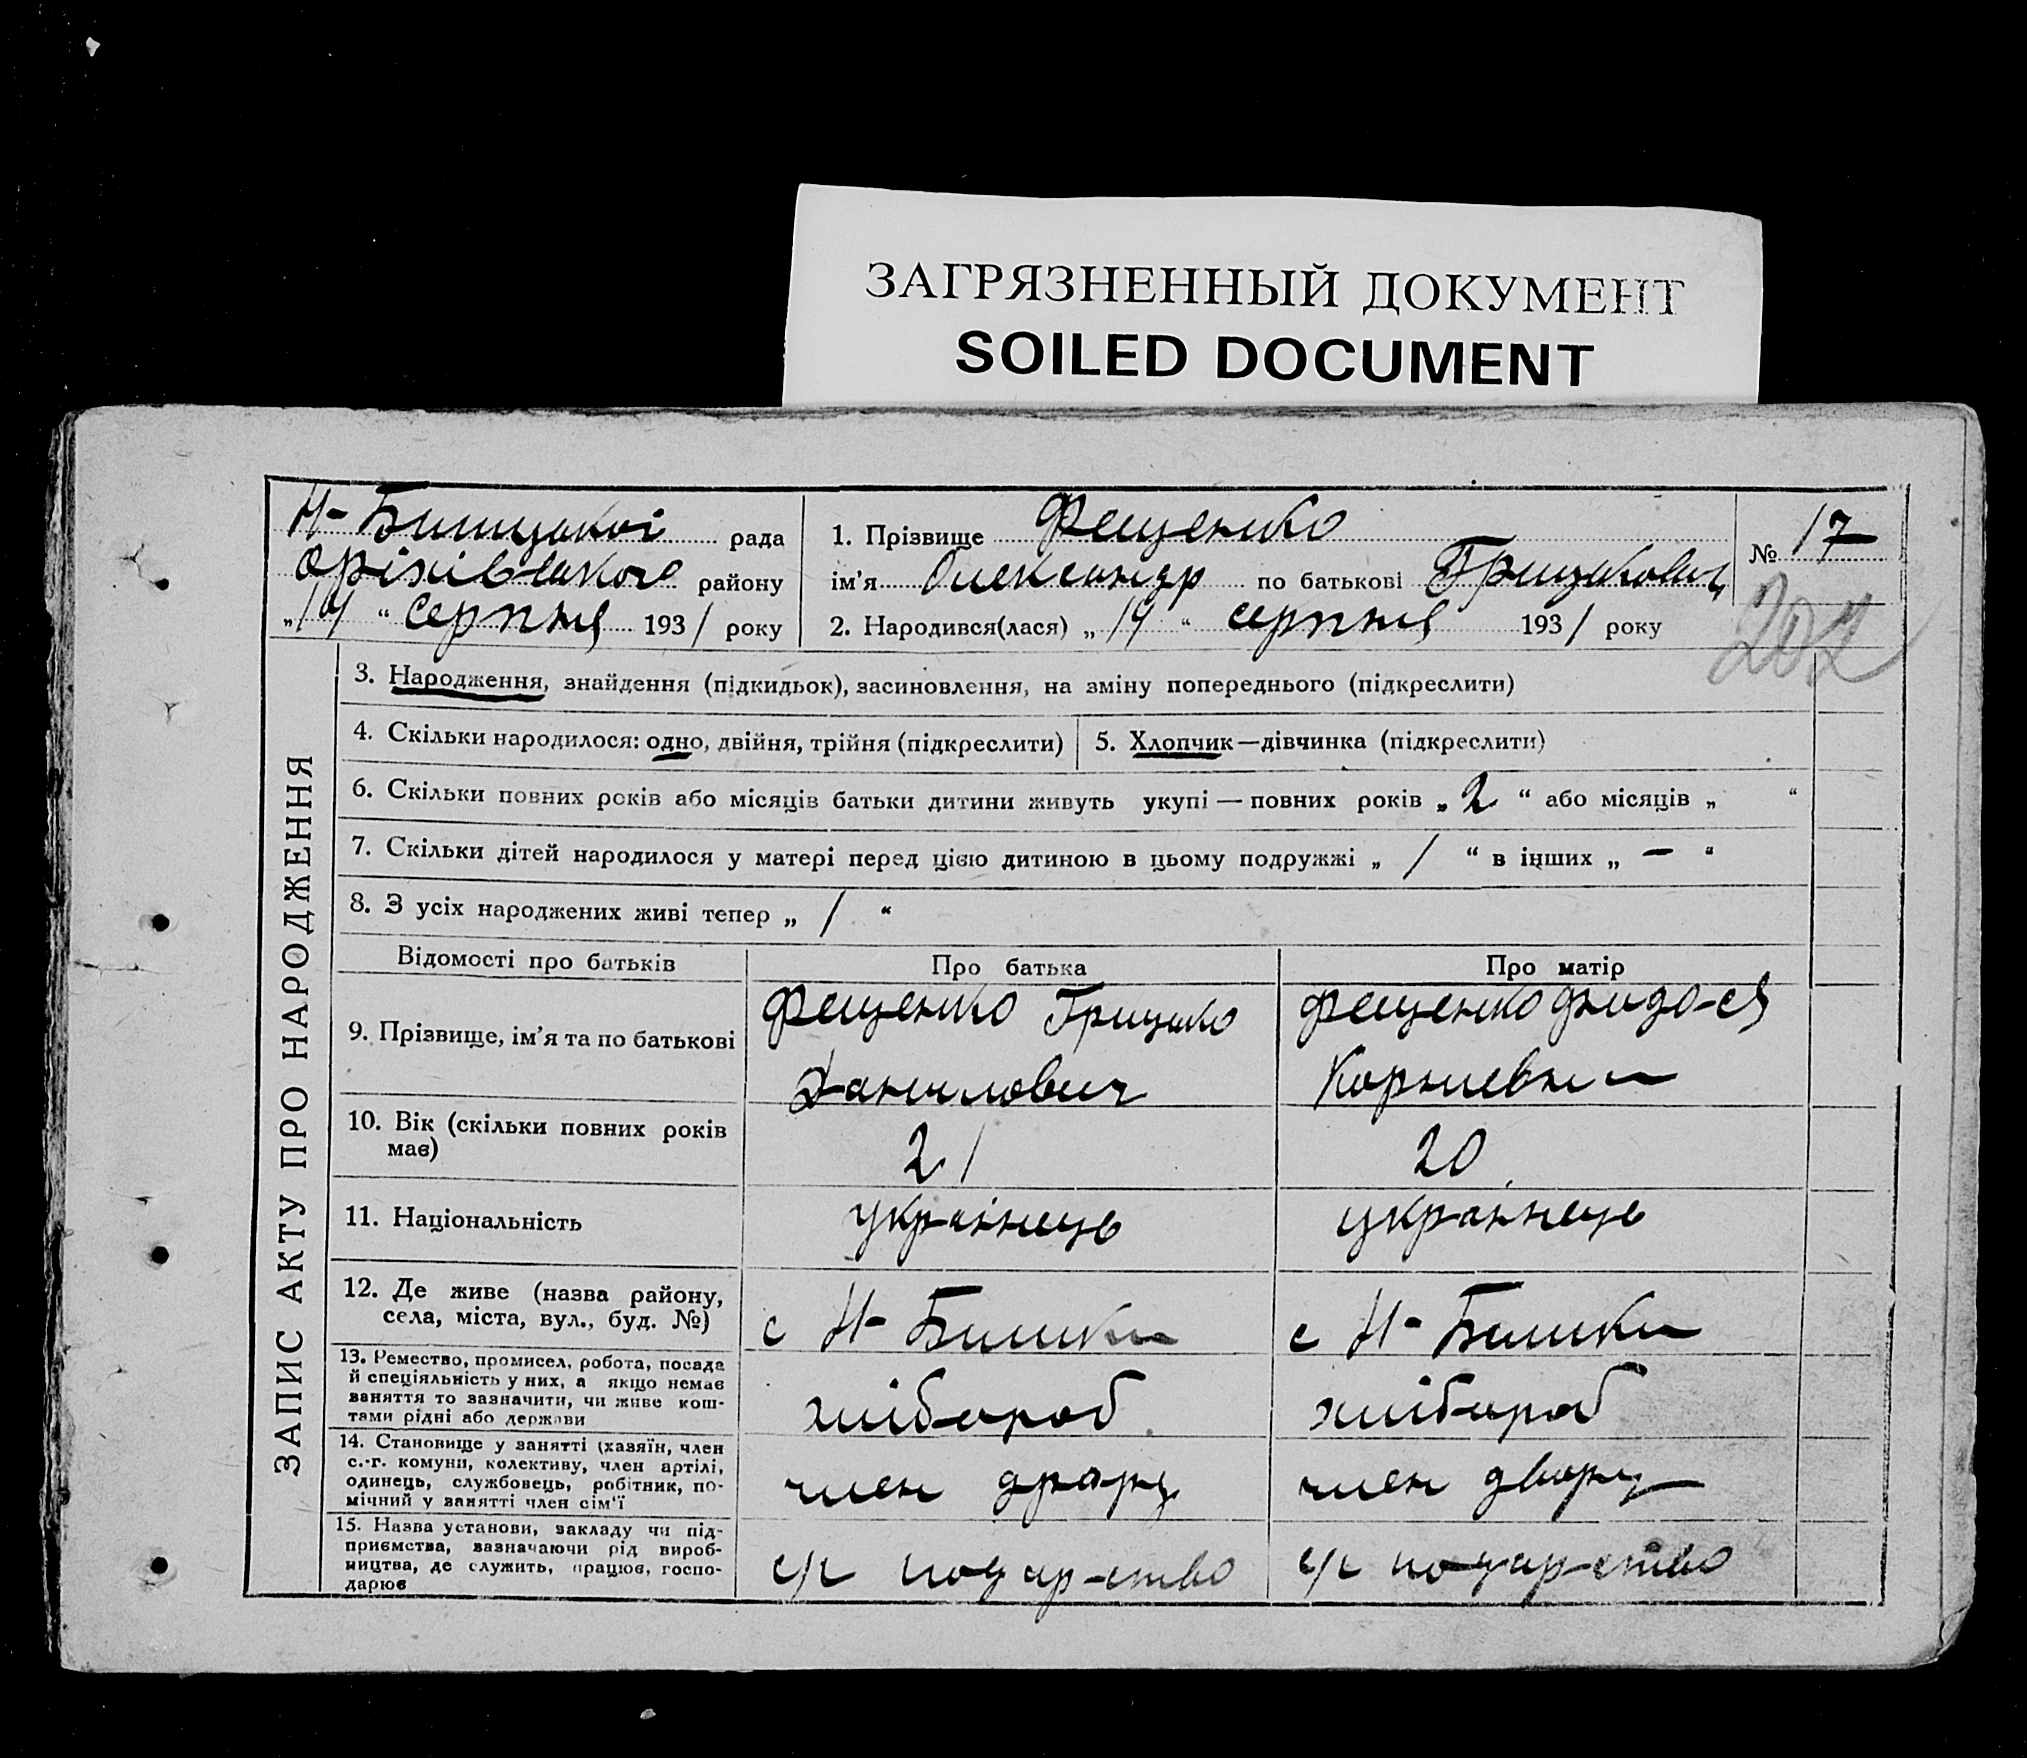 ЗАГРЯЗНЕННЫЙ ДОКУМЕНТ
SOILED DOCUMENT
рада
Оріхівського району
„14“ серпня 1931 року
1. Прізвище Фещенко
ім’я Олександр по батькові Грицькович
2. Народився(лася) „14“ серпня 1931 року
№ 17
202
ЗАПИС АКТУ ПРО НАРОДЖЕННЯ
3. Народження, знайдення (підкидьок), засиновлення, на зміну попереднього (підкреслити)
4. Скільки народилося: одно, двійня, трійня (підкреслити)
5. Хлопчик—дівчинка (підкреслити)
6. Скільки повних років або місяців батьки дитини живуть укупі — повних років „2“ або місяців „ “
7. Скільки дітей народилося у матері перед цією дитиною в цьому подружжі „/“ в інших „—“
8. З усіх народжених живі тепер „/“
Відомості про батьків
Про батька
Про матір
9. Прізвище, ім’я та по батькові
Фещенко Грицько
Данилович
Фещенко
Корниевни
10. Вік (скільки повних років
має)
21
20
11. Національність
українець
українець
12. Де живе (назва району,
села, міста, вул., буд. №)
с Н-
с Н-
13. Ремество, промисел, робота, посада
й спеціяльність у них, а якщо немає
заняття то зазначити, чи живе кош-
тами рідні або держави
хлібороб
хлібороб
14. Становище у занятті (хазяїн, член
с.-г. комуни, колективу, член артілі,
одинець, службовець, робітник, по-
мічний у занятті член сім’ї
член двору
член двору
15. Назва установи, закладу чи під-
приємства, зазначаючи рід вироб-
ництва, де служить, працює, госпо-
дарює